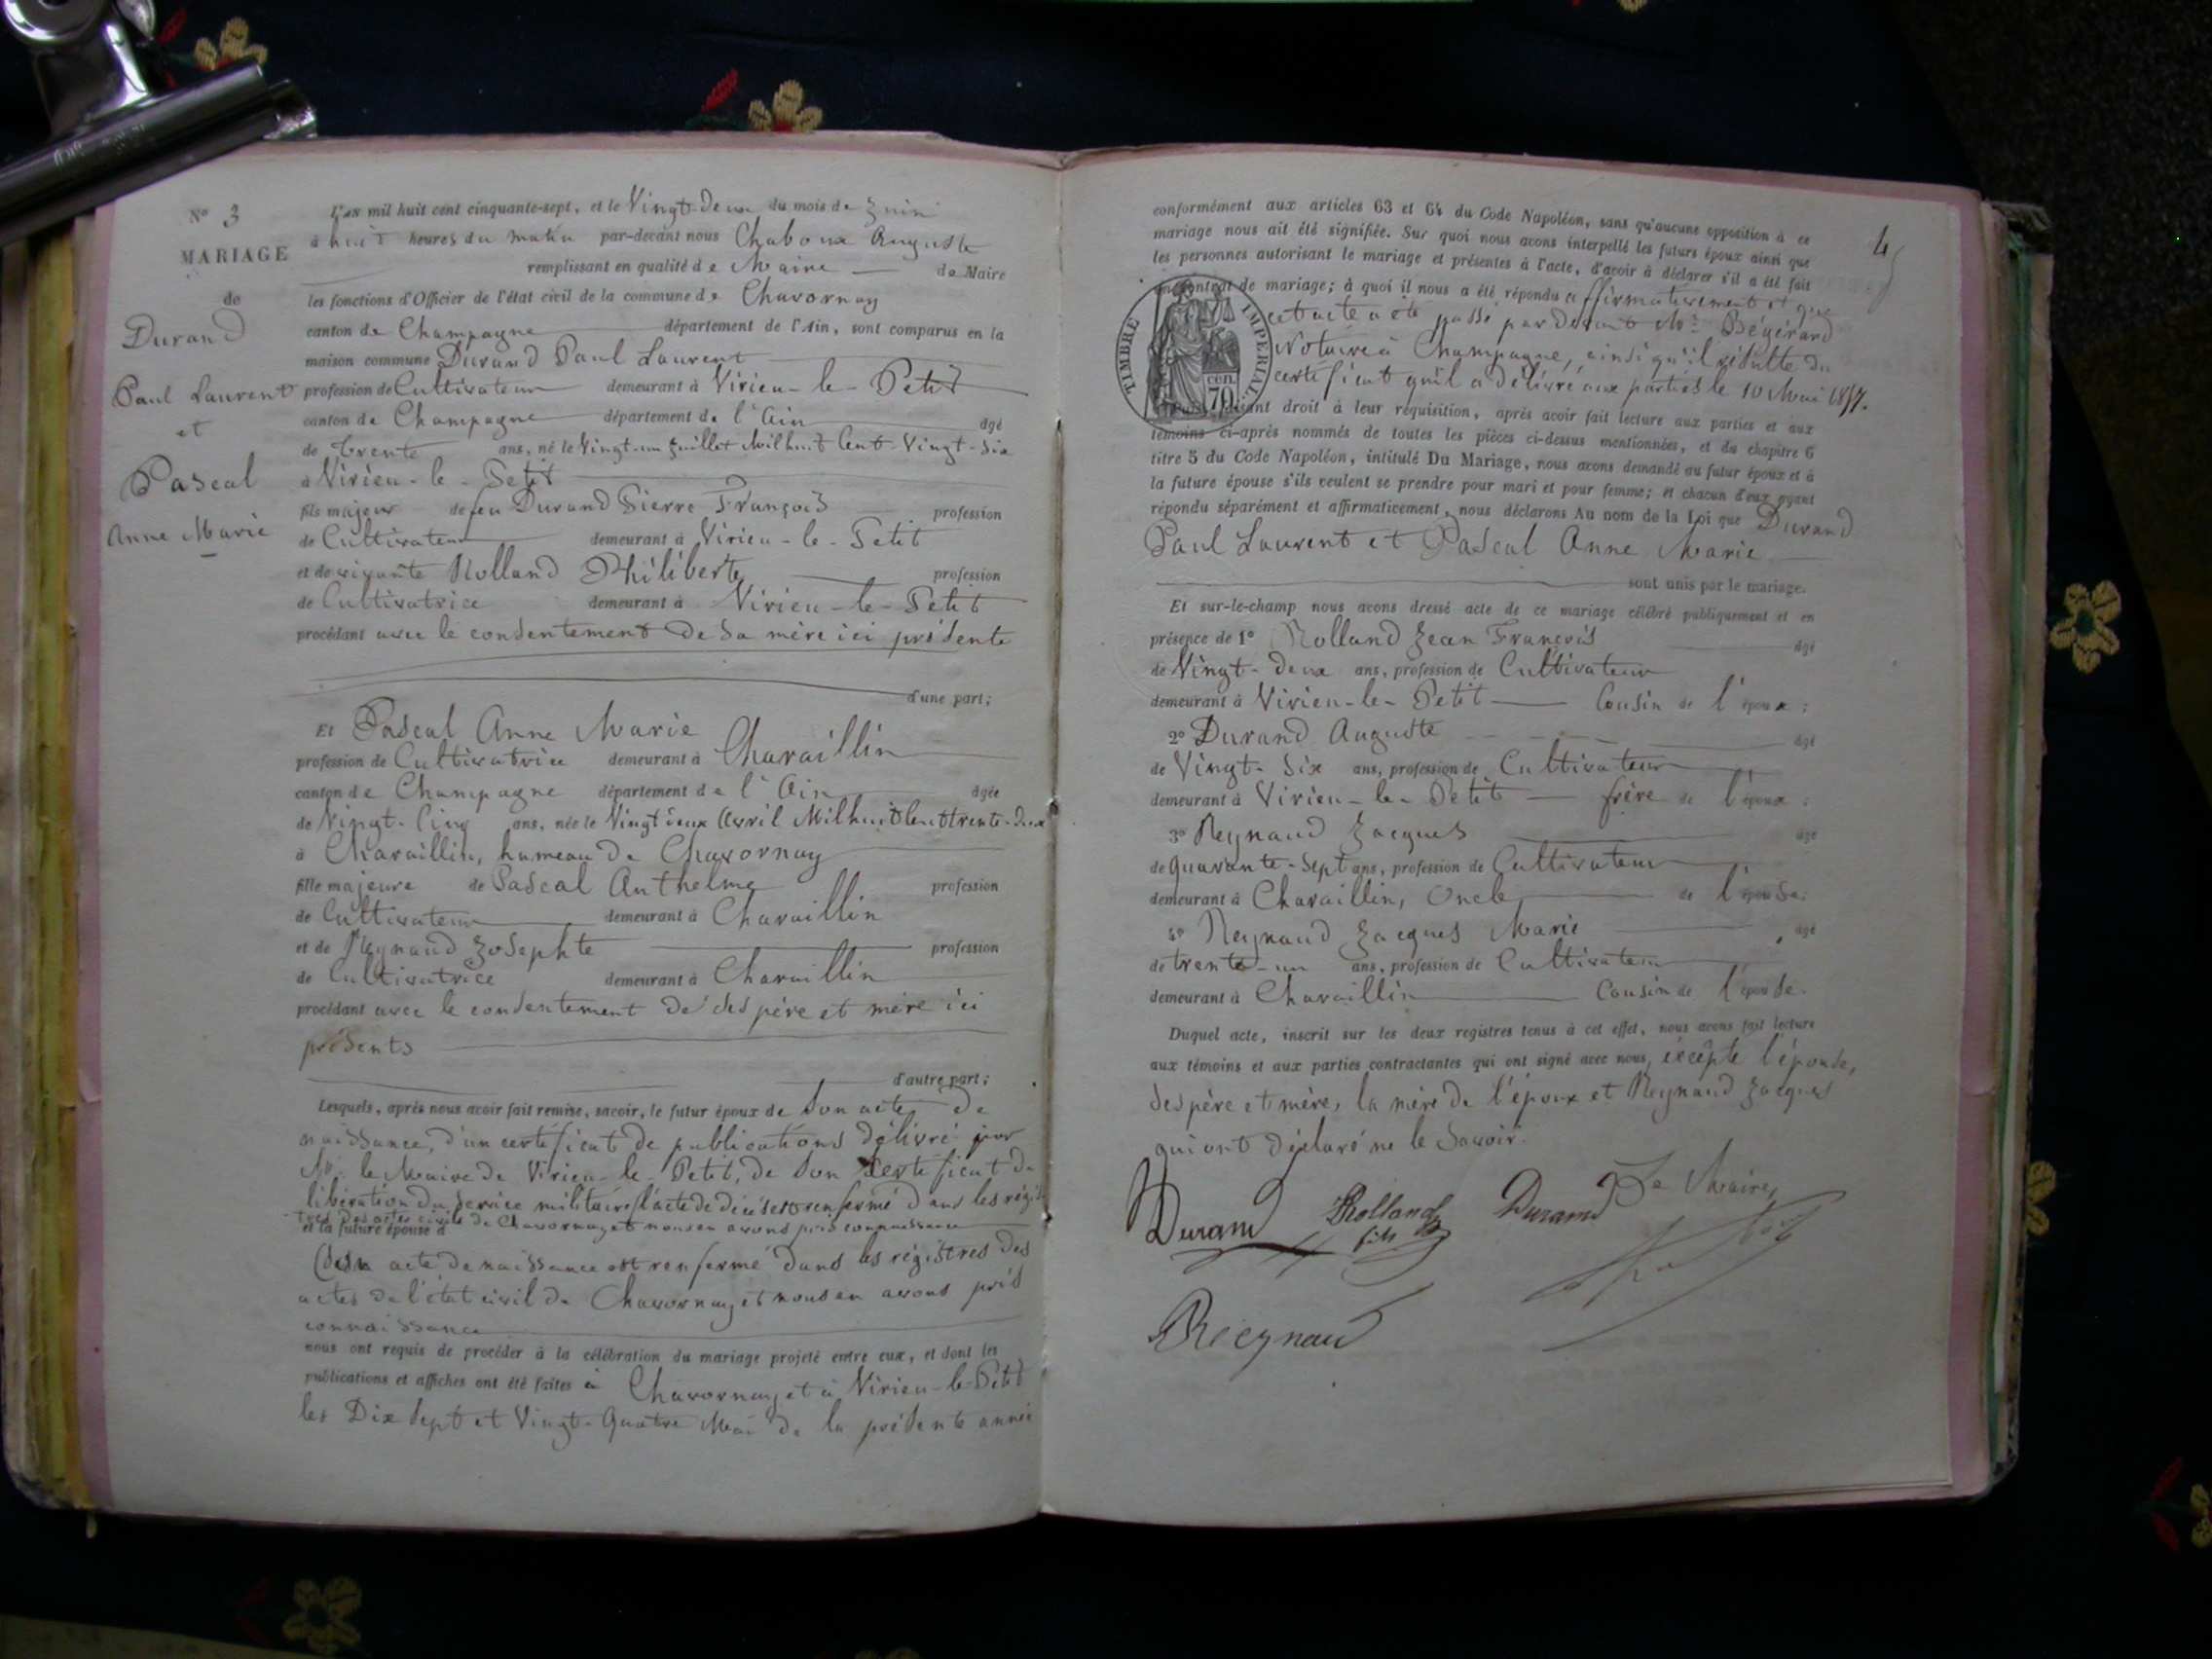 N° 3
MARIAGE
de
Durand
Paul Laurent
et
Pascal
Anne Marie
L'an mil huit cent cinquante-sept, et le Vingt-Deux du mois de Juin
à huit heures du matin par-devant nous Chaboux Auguste
remplissant en qualité de Maire de Maire
les fonctions d'Officier de l'état civil de la commune de Chavornay
canton de Champagne département de l'Ain, sont comparus en la
maison commune Durand Paul Laurent
profession de Cultivateur demeurant à Virieu-le-Petit
canton de Champagne département de l'Ain âgé
de trente ans, né le Vingt-un Juillet Mil huit Cent Vingt-Six
à Virieu-le-Petit
fils majeur de feu Durand Pierre François profession
de Cultivateur demeurant à Virieu-le-Petit
et de vivante Rolland Philiberte profession
de Cultivatrice demeurant à Virieu-le-Petit
procédant avec le consentement de sa mère ici présente
d'une part;
Et Pascal Anne Marie
profession de Cultivatrice demeurant à Charaillin
canton de Champagne département de l'Ain âgée
de Vingt-Cinq ans, née le Vingt deux Avril Mil huit Cent trente-deux
à Charaillin, hameau de Chavornay
fille majeure de Pascal Anthelme profession
de Cultivateur demeurant à Charaillin
et de Reynaud Josephte profession
de Cultivatrice demeurant à Charaillin
procédant avec le consentement de ses père et mère ici
présents
d'autre part;
Lesquels, après nous avoir fait remise, savoir, le futur époux de Son acte de
naissance, d'un certificat de publications délivré par
Mr. le Maire de Virieu-le-Petit, de Son certificat de
libération du service militaire, l'acte de décès est renfermé dans les régis
tres des actes civils de Chavornay et nous en avons pris connaissance
et la future épouse d
acte de naissance est renfermé dans les régistres des
actes de l'état civil de Chavornay et nous en avons pris
connaissance
nous ont requis de procéder à la célébration du mariage projeté entre eux, et dont les
publications et affiches ont été faites à Chavornay et à Virieu-le-Petit
les Dix Sept et Vingt-Quatre Mai de la présente année
4
conformément aux articles 63 et 64 du Code Napoléon, sans qu'aucune opposition à ce
mariage nous ait été signifiée. Sur quoi nous avons interpellé les futurs époux ainsi que
les personnes autorisant le mariage et présentes à l'acte, d'avoir à déclarer s'il a été fait
un contrat de mariage; à quoi il nous a été répondu affirmativement et que
cet acte a été passé par devant Me Bégérard
Notaire à Champagne, ainsi qu'il résulte du
certificat qu'il a délivré aux parties le 10 Mai 1857.
TIMBRE IMPERIAL
cen. 70
Faisant droit à leur réquisition, après avoir fait lecture aux parties et aux
témoins ci-après nommés de toutes les pièces ci-dessus mentionnées, et du chapitre 6
titre 5 du Code Napoléon, intitulé Du Mariage, nous avons demandé au futur époux et à
la future épouse s'ils veulent se prendre pour mari et pour femme; et chacun d'eux ayant
répondu séparément et affirmativement, nous déclarons Au nom de la Loi que Durand
Paul Laurent et Pascal Anne Marie
sont unis par le mariage.
Et sur-le-champ nous avons dressé acte de ce mariage célébré publiquement et en
présence de 1° Rolland Jean François âgé
de Vingt-deux ans, profession de Cultivateur
demeurant à Virieu-le-Petit Cousin de l'époux;
2° Durand Auguste âgé
de Vingt-Six ans, profession de Cultivateur
demeurant à Virieu-le-Petit frère de l'époux;
3° Reynaud Jacques âgé
de quarante-Sept ans, profession de Cultivateur
demeurant à Charaillin, Oncle de l'épouse;
4° Reynaud Jacques Marie âgé
de trente-un ans, profession de Cultivateur
demeurant à Charaillin Cousin de l'épouse.
Duquel acte, inscrit sur les deux registres tenus à cet effet, nous avons fait lecture
aux témoins et aux parties contractantes qui ont signé avec nous, excepté l'épouse,
ses père et mère, la mère de l'époux et Reynaud Jacques
qui ont déclaré ne le Savoir.
Durand Rolland fils Durand Le Maire,
Reynaud